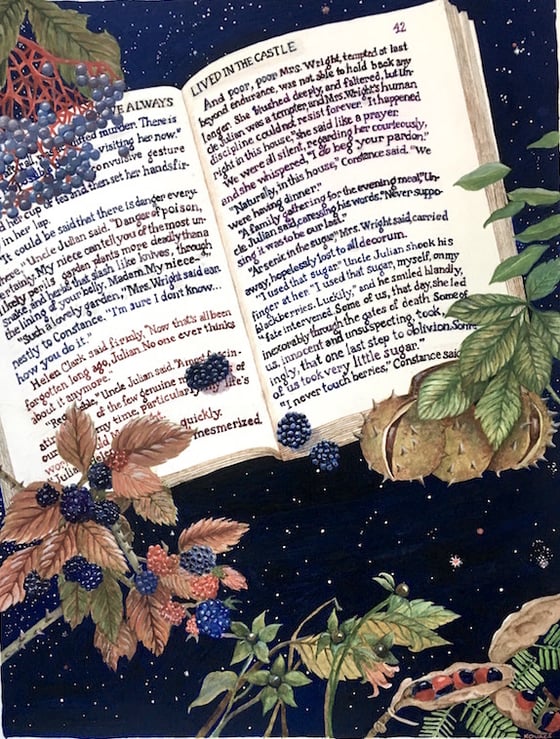 VE ALWAYS
murder. There is
visiting her now."
onvulsive gesture
his cup of tea and then set her hands fir-
y in her lap.
"It could be said that there is danger every-
here," Uncle Julian said. "Danger of poison,
ertainly. My niece can tell you of the most un-
likely perils - garden plants more deadly than a
snake and herbs that slash like knives through
the lining of your belly, Madam. My niece-"
"Such a lovely garden," Mrs. Wright said ear-
nestly to Constance. "I'm sure I don't know
how you do it."
Helen Clark said firmly, "Now that's all been
forgotten long ago, Julian. No one ever thinks
about it anymore."
"Reg able," Uncle Julian said. "A most fascin-
ati of the few genuine m
our time, particularly life's
wor quickly.
Julian mesmerized
LIVED IN THE CASTLE
42
And poor, poor Mrs. Wright, tempted at last
beyond endurance, was not able to hold back any
longer. She blushed deeply, and faltered, but Un-
cle Julian was a tempter, and Mrs. Wright's human
discipline could not resist forever. "It happened
right in this house," she said like a prayer.
We were all silent, regarding her courteously,
and she whispered, "I do beg your pardon."
"Naturally, in this house," Constance said. "We
were having dinner."
"A family gathering for the evening meal," Un-
cle Julian said, caressing his words. "Never suppo-
sing it was to be our last."
"Arsenic in the sugar," Mrs. Wright said, carried
away, hopelessly lost to all decorum.
"I used that sugar." Uncle Julian shook his
finger at her. "I used that sugar, myself, on my
blackberries. Luckily," and he smiled blandly,
"fate intervened. Some of us, that day, she led
inexorably through the gates of death. Some of
us, innocent and unsuspecting, took,
ingly, that one last step to oblivion. Some
of us took very little sugar."
"I never touch berries," Constance said